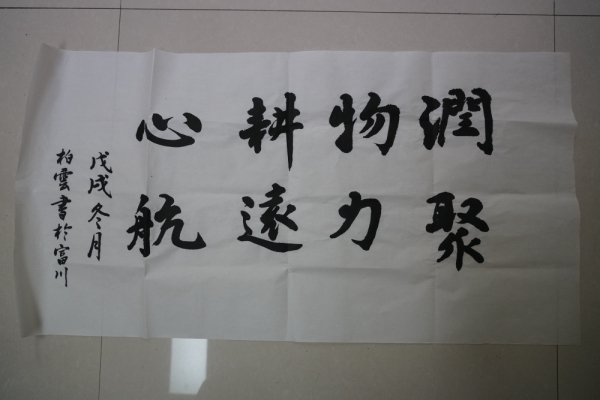 潤物耕心
聚力遠航
戊戌冬月
柏雲書於富川